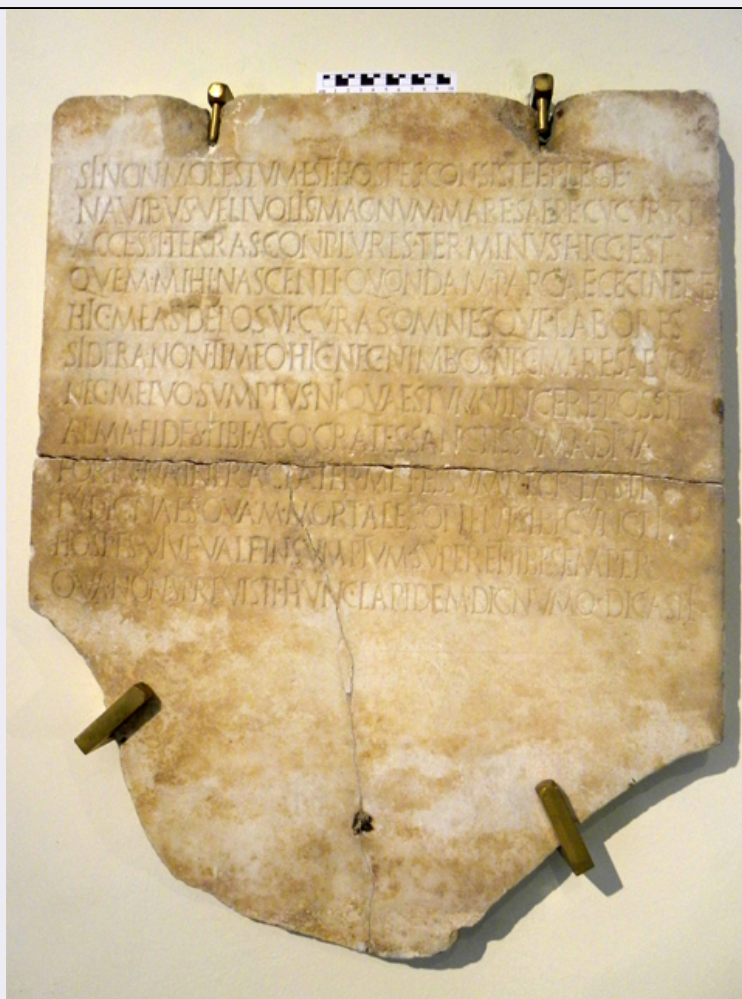 SI·NON·MOLESTVM·EST·HOSPES·CONSISTE·ET·LEGE·
NAVIBVS·VELIVOLIS·MAGNVM·MARE·SAEPE·CVCVRRI
ACCESSI·TERRAS·CONPLVRES·TERMINVS·HICC·EST
QVEM·MIHI·NASCENTI·QVONDAM·PARCAE·CECINERE
HIC·MEAS·DEPOSVI·CVRAS·OMNESQVE·LABORES
SIDERA·NON·TIMEO·HIC·NEC·NIMBOS·NEC·MARE·SAEVOM
NEC·METVO·SVMPTVS·NI·QVAESTVM·VINCERE·POSSIT
ALMA·FIDES·TIBI·AGO·GRATES·SANCTISSVMA·DIVA
FORTVNA·INFRACTA·TER·ME·FESSVM·RECREASTI
TV·DIGNA·ES·QVAM·MORTALES·OPTENT·SIBI·CVNCTI
HOSPES·VIVE·VALE·IN·SVMPTVM·SVPERET·TIBI·SEMPER
QVA·NON·SPREVISTI·HVNC·LAPIDEM·DIGNVMQ·DICASTI